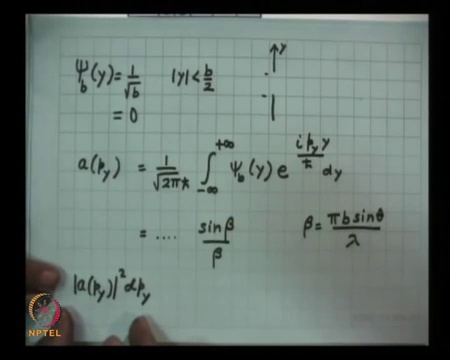 ψ_b(y) = 1/√b |y| < b/2 y
= 0
a(p_y) = 1/√(2πħ) ∫_{-∞}^{+∞} ψ_b(y) e^{i p_y y / ħ} dy
= .... sin β / β β = πb sinθ / λ
|a(p_y)|² dp_y
NPTEL